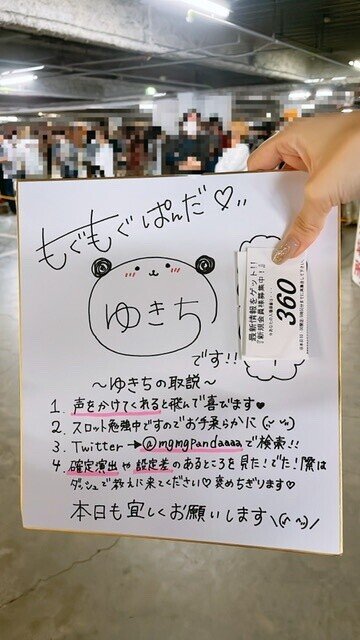 もぐもぐぱんだ♡,,
ゆきち
です!!
最新情報をゲット!!
『新規会員様募集中!』
360
〜ゆきちの取説〜
1. 声をかけてくれると飛んで喜びます♥
2. スロット勉強中ですのでお手柔らかに
3. Twitter→@mgmgpandaaaaで検索!!
4. 確定演出や設定差のあるところを見た!でた!際は
ダッシュで教えに来てください♡褒めちぎります♡
本日も宜しくお願いします